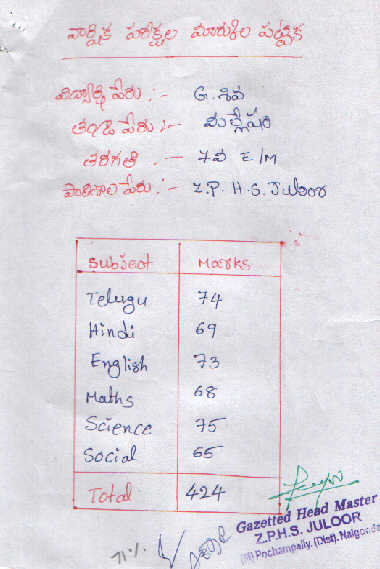 వార్షిక పరీక్షల మార్కుల పట్టిక
విద్యార్థి పేరు :- G. శివ
తండ్రి పేరు :- మల్లేషం
తరగతి :- 7వ E/M
పాఠశాల పేరు :- Z.P.H.S. Juloor
Subject Marks
Telugu 74
Hindi 69
English 73
Maths 68
Science 75
Social 65
Total 424
71%
Gazetted Head Master
Z.P.H.S. JULOOR
Pochampally, (Dist). Nalgonda